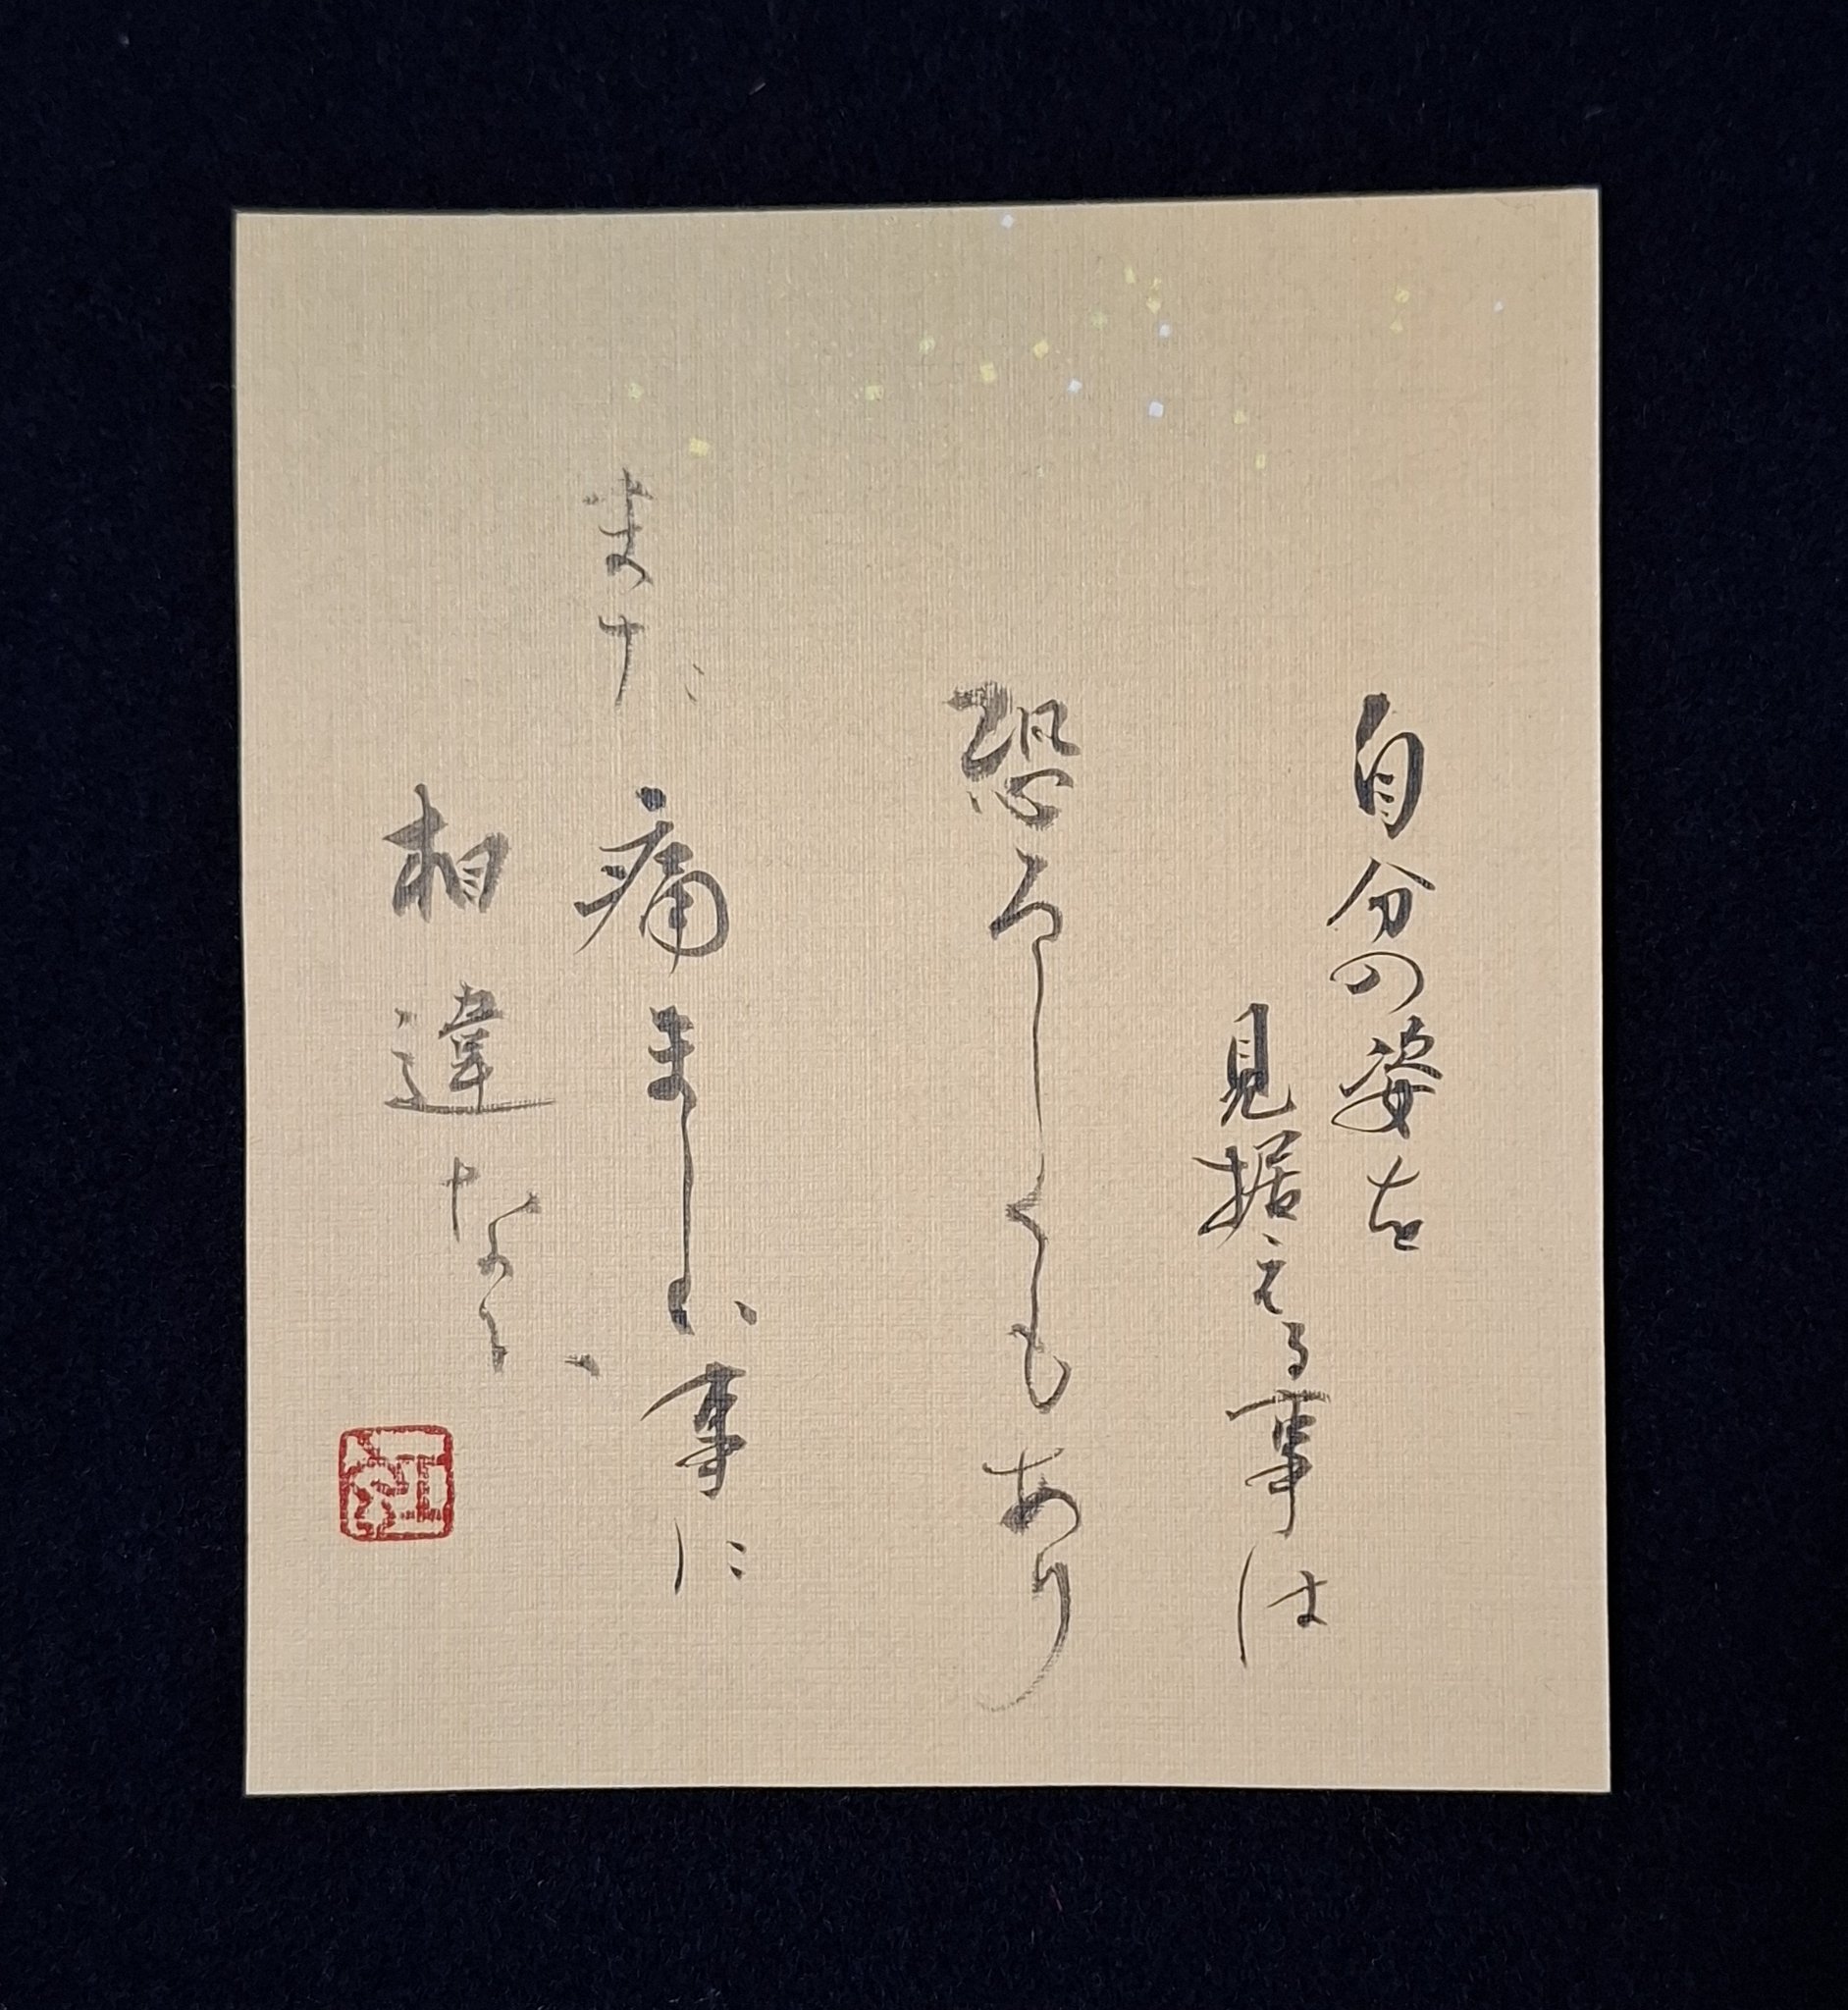 自分の姿を
見据える事は
恐ろしくもあり
また
痛ましい事に
相違ない
紅